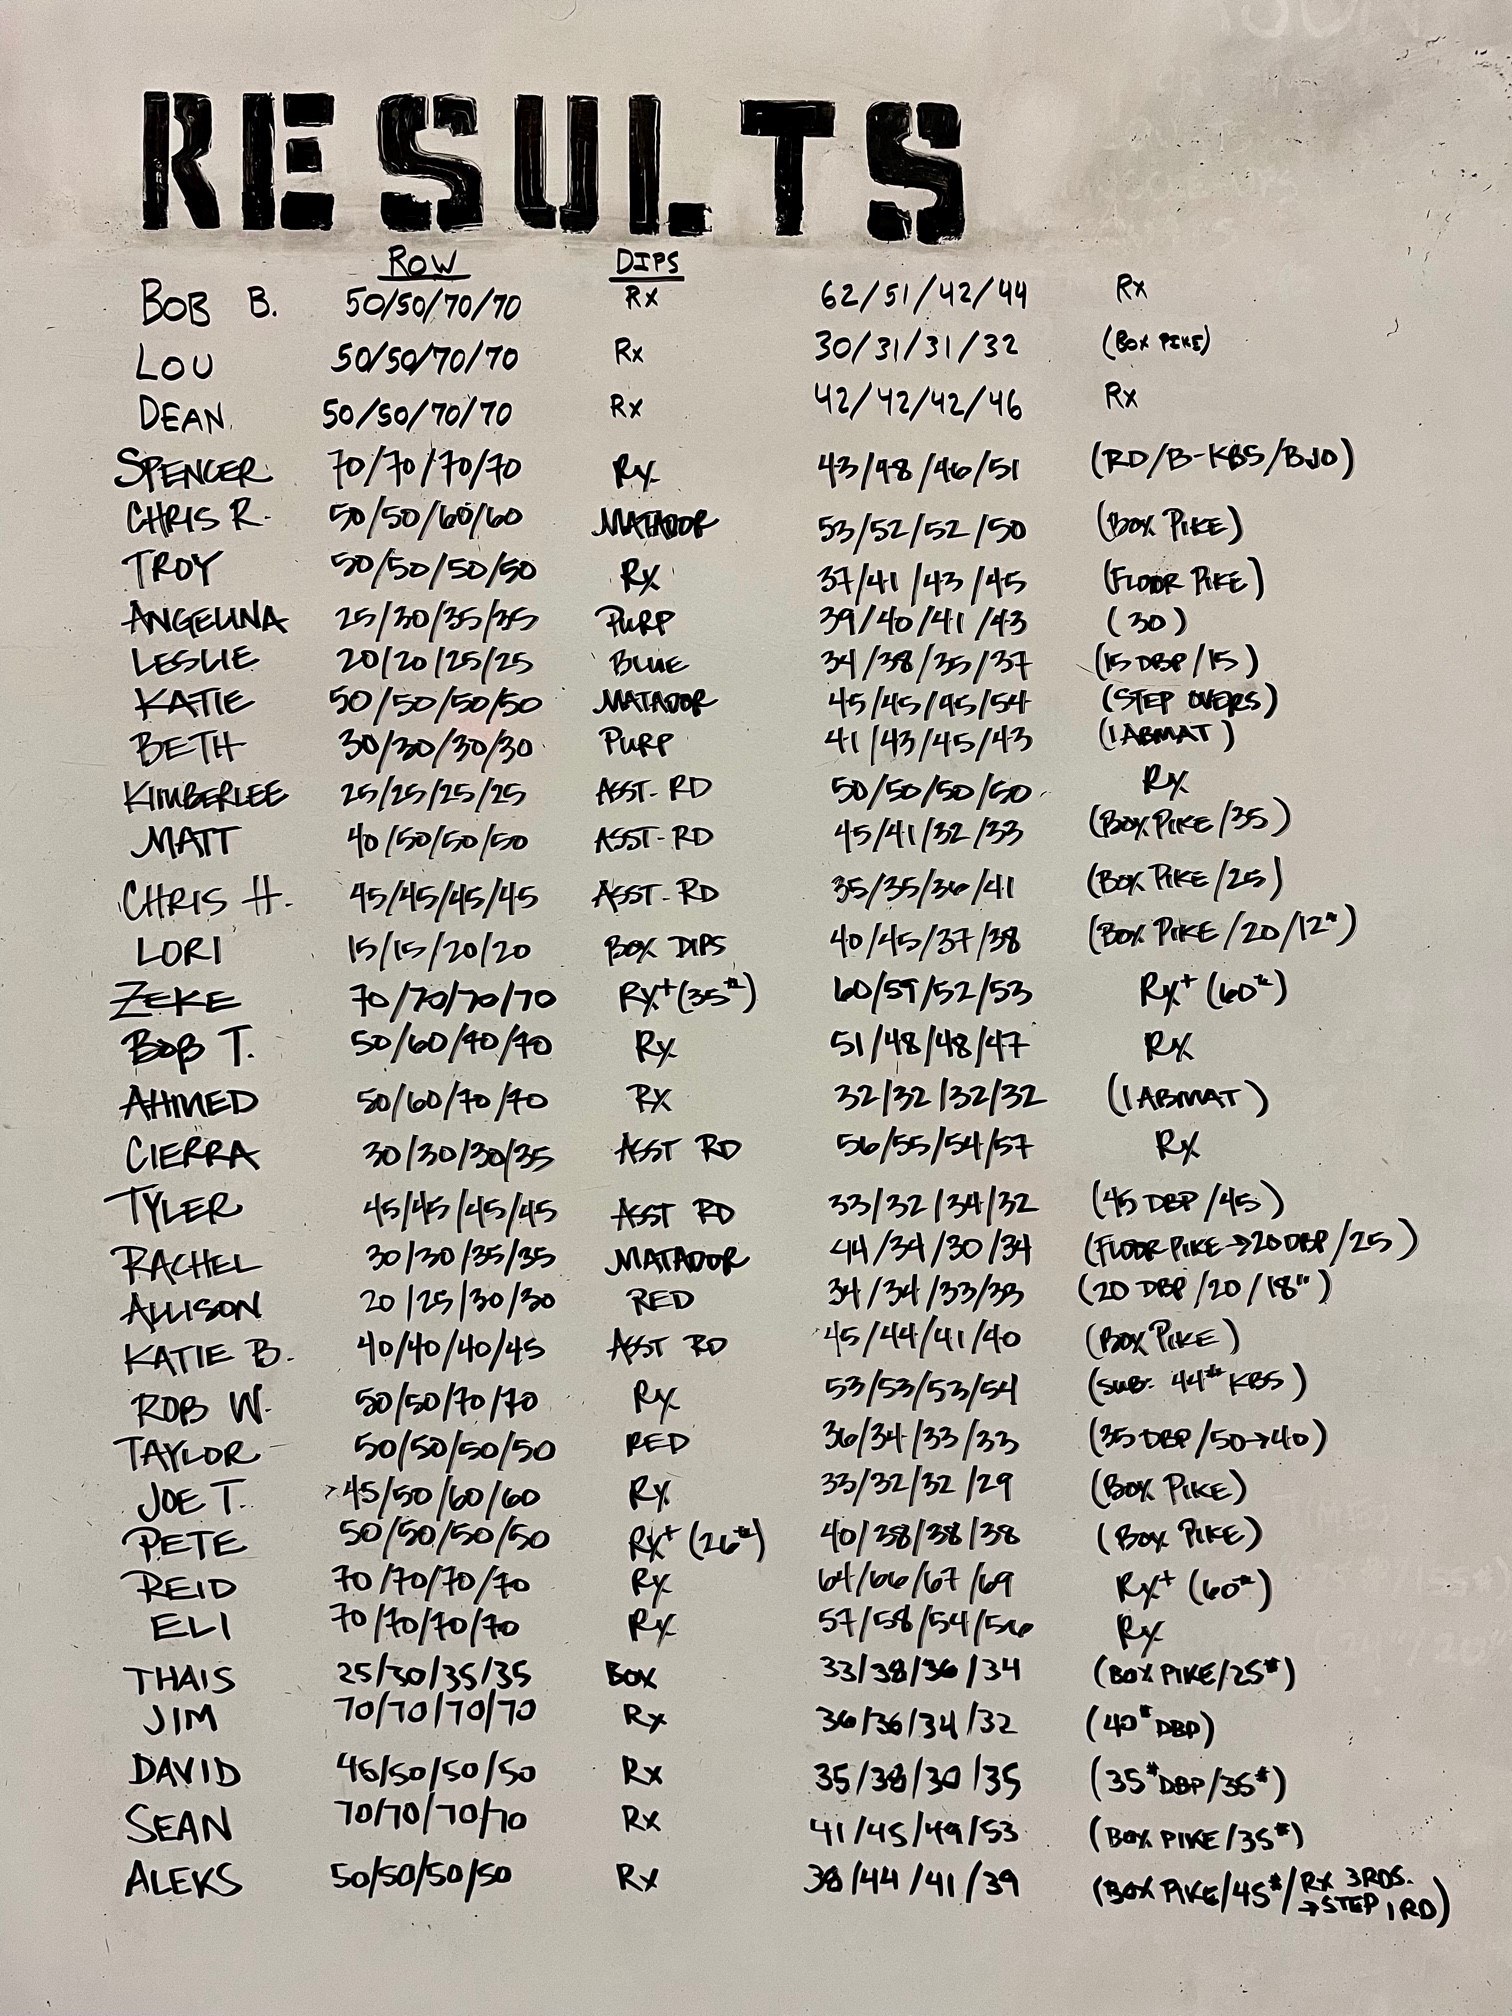 RESULTS
ROW DIPS
BOB B. 50/50/70/70 Rx 62/51/42/44 Rx
LOU 50/50/70/70 Rx 30/31/31/32 (BOX PIKE)
DEAN. 50/50/70/70 Rx 42/42/42/46 Rx
SPENCER 70/70/70/70 Rx 43/48/46/51 (RD/B-KBS/BJO)
CHRIS R. 50/50/60/60 MATADOR 53/52/52/50 (BOX PIKE)
TROY 50/50/50/50 Rx 37/41/43/45 (FLOOR PIKE)
ANGELINA 25/30/35/35 PURP 39/40/41/43 (30)
LESLIE 20/20/25/25 BLUE 34/38/35/37 (15 DBP/15)
KATIE 50/50/50/50 MATADOR 45/45/45/54 (STEP OVERS)
BETH 30/30/30/30 PURP 41/43/45/43 (1 ABMAT)
KIMBERLEE 25/25/25/25 ASST-RD 50/50/50/50 Rx
MATT 40/50/50/50 ASST-RD 45/41/32/33 (BOX PIKE/35)
CHRIS H. 45/45/45/45 ASST-RD 35/35/36/41 (BOX PIKE/25)
LORI 15/15/20/20 BOX DIPS 40/45/37/38 (BOX PIKE/20/12#)
ZEKE 70/70/70/70 Rx+(35#) 60/59/52/53 Rx+ (60#)
BOB T. 50/60/70/70 Rx 51/48/48/47 Rx
AHMED 50/60/70/70 Rx 32/32/32/32 (1 ABMAT)
CIERRA 30/30/30/35 ASST RD 56/55/54/57 Rx
TYLER 45/45/45/45 ASST RD 33/32/34/32 (45 DBP/45)
RACHEL 30/30/35/35 MATADOR 44/34/30/34 (FLOOR PIKE→20 DBP/25)
ALLISON 20/25/30/30 RED 34/34/33/33 (20 DBP/20/18")
KATIE B. 40/40/40/45 ASST RD 45/44/41/40 (BOX PIKE)
ROB W. 50/50/70/70 Rx 53/53/53/54 (SUB. 44# KBS)
TAYLOR 50/50/50/50 RED 36/34/33/33 (35 DBP/50→40)
JOE T. 45/50/60/60 Rx 33/32/32/29 (BOX PIKE)
PETE 50/50/50/50 Rx+ (26#) 40/38/38/38 (BOX PIKE)
REID 70/70/70/70 Rx 64/66/67/69 Rx+ (60#)
ELI 70/70/70/70 Rx 57/58/54/56 Rx
THAIS 25/30/35/35 BOX 33/38/36/34 (BOX PIKE/25#)
JIM 70/70/70/70 Rx 36/36/34/32 (40# DBP)
DAVID 45/50/50/50 Rx 35/38/30/35 (35# DBP/35#)
SEAN 70/70/70/70 Rx 41/45/49/53 (BOX PIKE/35#)
ALEKS 50/50/50/50 Rx 38/44/41/39 (BOX PIKE/45#/RX 3RDS.
→STEP 1 RD)